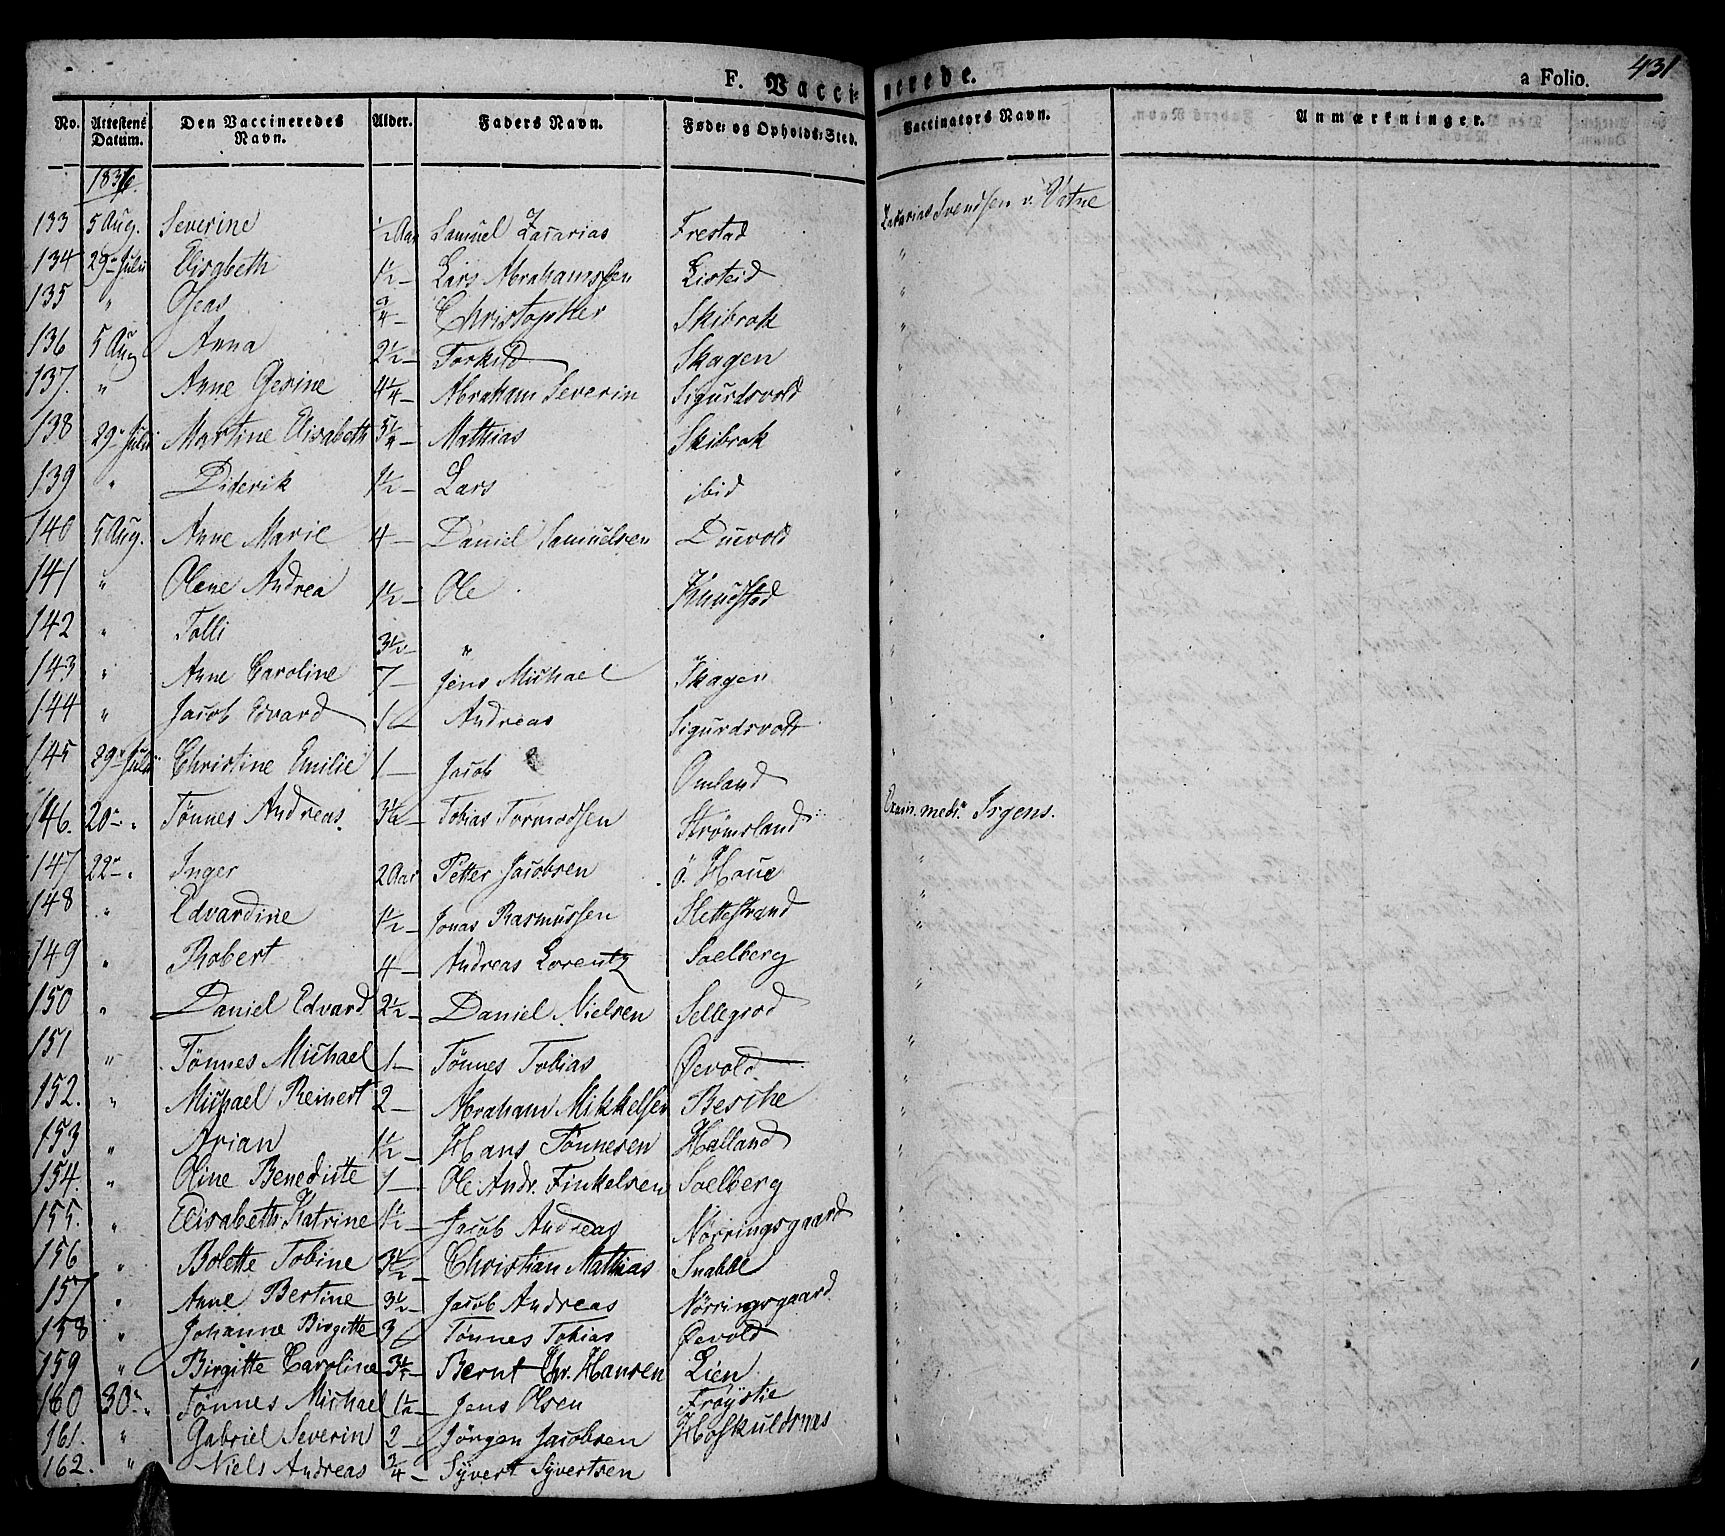 F. Vacci-
nerede.
a Folio.
431
No. Attestens Datum. Den Vaccineredes Navn. Alder. Faders Navn. Føde- og Opholds-Sted. Vaccinators Navn. Anmærkninger.
1836.
133 5 Aug. Severine ½ Aar Samuel Zacarias Frestad Zacarias Svendsen v. Vatne
134 29de Julii Elisabeth 1½ — Lars Abrahamssen Eisteid "
135 " Oseas Christopher Skibrok "
136 5 Aug Anna 2½ — Torkild Skagen "
137. " Anne Gesine 4¼ — Abraham Severin Sigurdsvold "
138 29de Julii Martine Elisabeth Mathias Skibrok
139 " Diderik 1½ — Lars ibid "
140 5 Aug. Anne Marie 4 — Daniel Samuelsen Duevold "
141 " Olene Andrea 1½ — Ole Knudstad "
142 " Tolli 3½ " "
143 " Anne Caroline 7 — Jens Michael Skagen "
144 " Jacob Edvard Andreas Sigurdsvold "
145 29de Julii Christine Emilie 1 — Jacob Omland "
146. 20de " Tønnes Andreas. Tobias Tormodsen Strømsland Exam. meds. Irgens.
147 22de " Inger 2 Aar Petter Jacobsen ø. Haue "
148 " Edvardine 1½ — Jonas Rasmussen Slettestrand "
149 " Robert 4 — Andreas Lorentz Soelberg "
150 " Daniel Edvard 2½ — Daniel Nielsen Sellegrod "
151 " Tønnes Michael 1 — Tønnes Tobias Øevold "
152. " Michael Reinert 2 — Abraham Mikkelsen Besche "
153 " Arian 1½ — Hans Tønnesen Halland "
154. " Oline Benedicte 1 — Ole Andr. Finkelsen Soelberg "
155. " Elisabeth Katrine 1½ — Jacob Andreas Nørringsgaard "
156 " Bolette Tobine 3½ — Christian Mathias Snabbe "
157 " Anne Bertine 3½ — Jacob Andreas Nørringsgaard "
158 " Johanne Birgitte 3 Tønnes Tobias Øevold "
159 " Birgitte Caroline 3½ — Bernt Chr. Hansen Lien "
160 30de " Tønnes Michael 1½ — Jens Olsen Frøystie "
161. " Gabriel Severin 2 — Jørgen Jacobsen Hoskuldsnes "
162. " Niels Andreas ¾ — Syvert Syvertsen